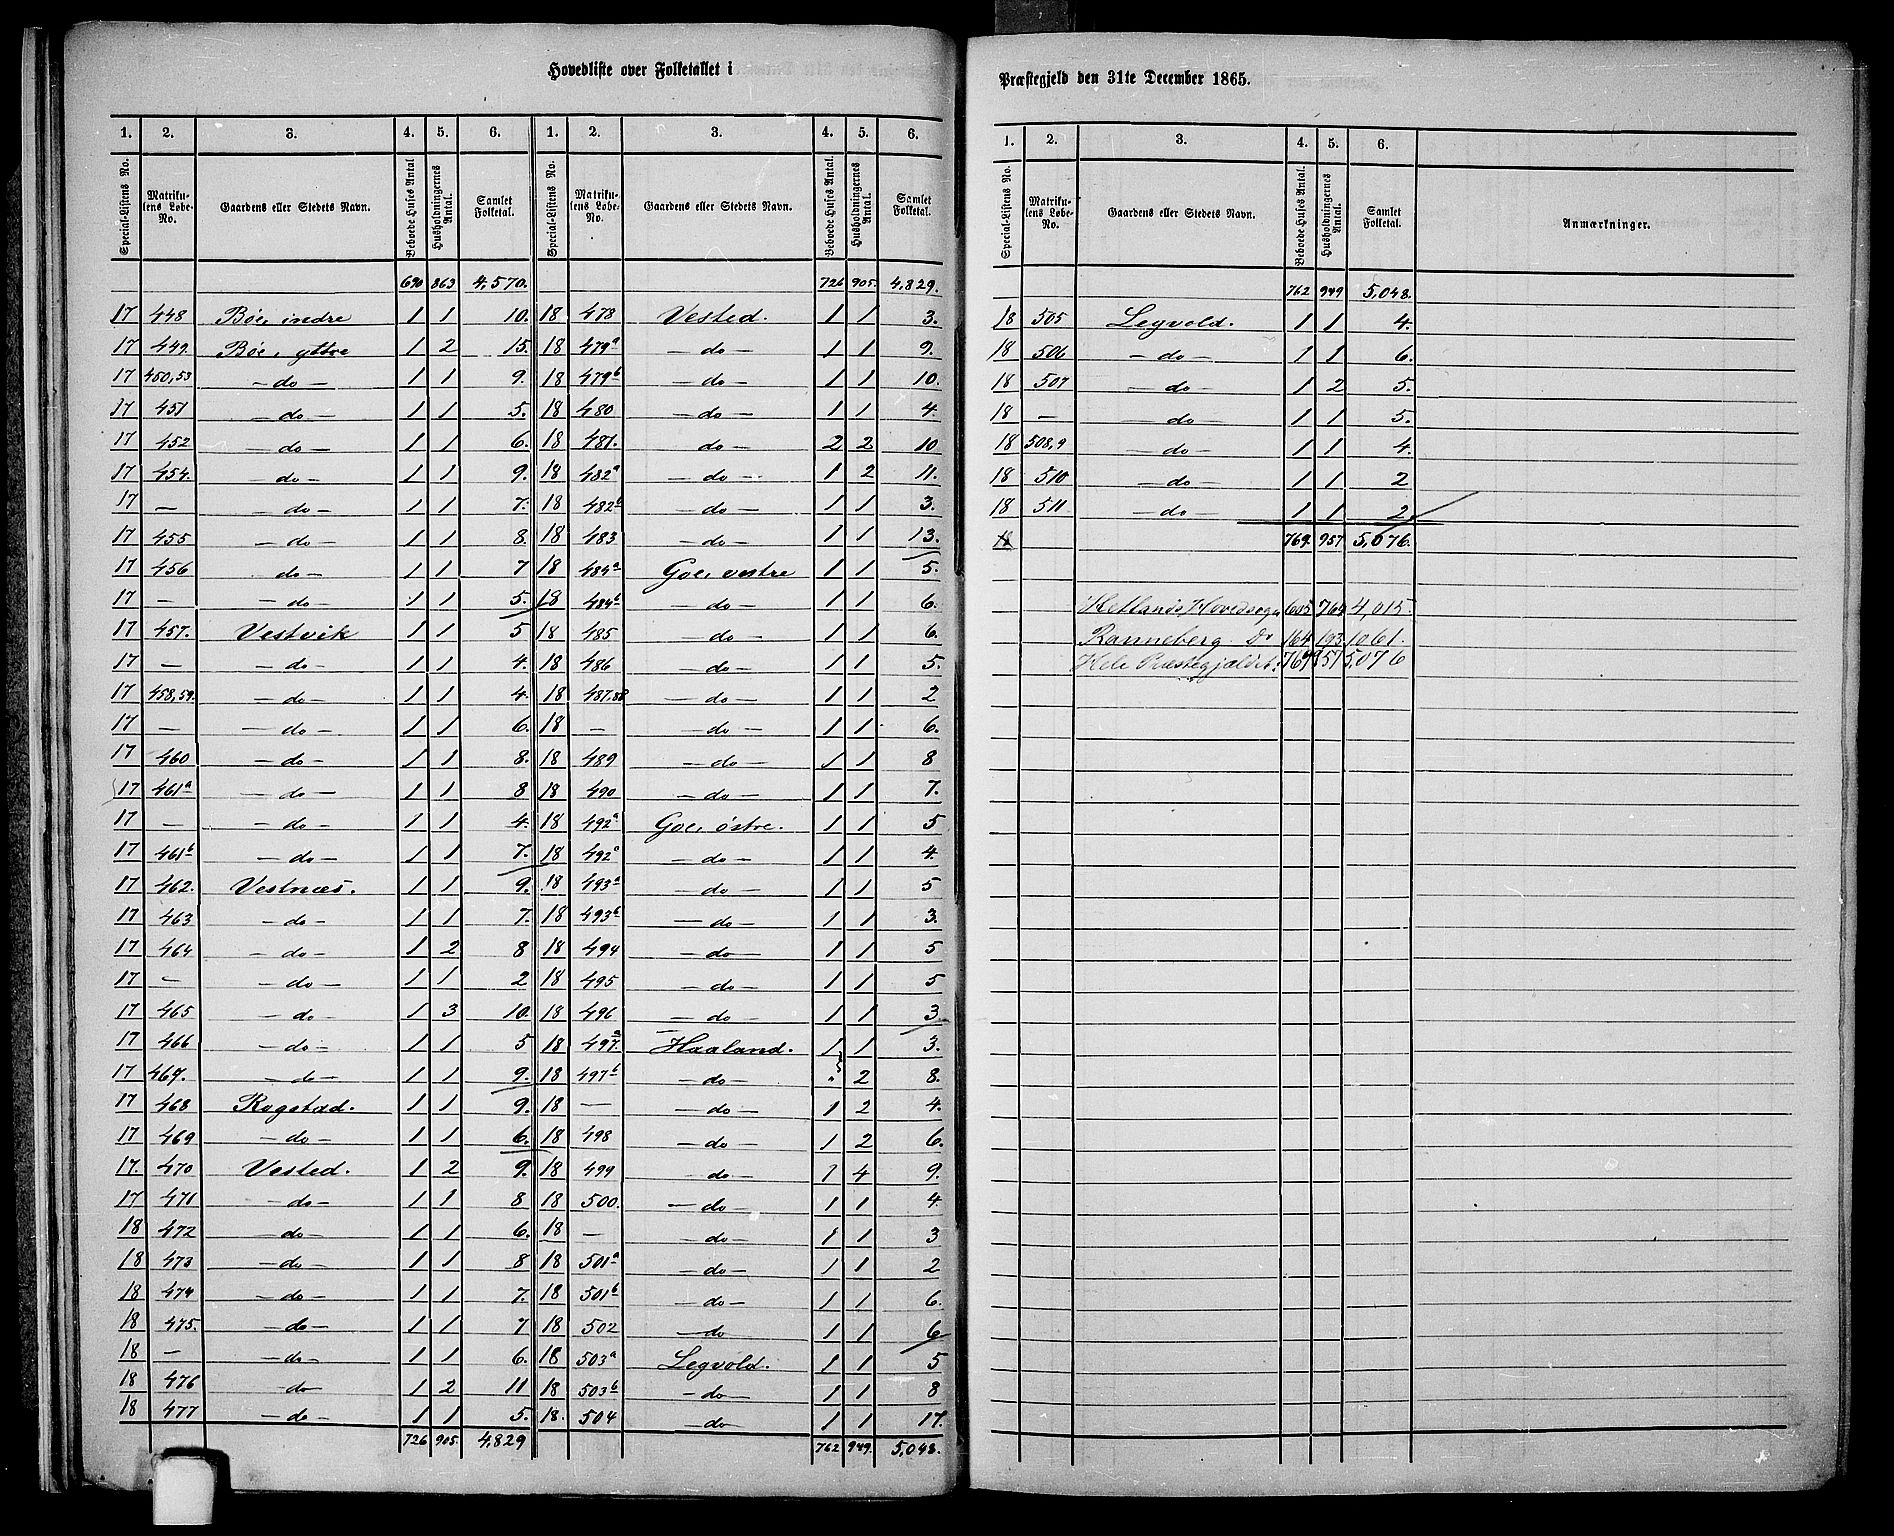 Hovedliste over Folketallet i
1. 2. 3. 4. 5. 6. 1. 2. 3. 4. 5. 6.
Special-Listens No. Matrikulens Løbe-No. Gaardens eller Stedets Navn. Beboede Huses Antal. Husholdningernes Antal. Samlet Folketal. Special-Listens No. Matrikulens Løbe-No. Gaardens eller Stedets Navn. Beboede Huses Antal. Husholdningernes Antal. Samlet Folketal.
690 863 4,570. 726 905. 4,829.
17 448 Böe, indre 1 1 10. 18 478 Vested. 1 1 3.
17 449. Böe, yttre 1 2 15. 18 479a - do - 1 1 9.
17 450,53 - do - 1 1 9. 18 479b - do - 1 1 10.
17 451 - do - 1 1 5. 18 480 - do - 1 1 4.
17 452 - do - 1 1 6. 18 481. do - 2 2 10
17 454. - do - 1 1 9. 18 482a - do - 1 2 11.
17 - - do - 1 1 7. 18 482b - do - 1 1 3.
17 455 - do - 1 1 8. 18 483 - do - 1 1 13.
17 456 do - 1 1 7 18 484a Goe, vestre 1 1 5.
17 - - do - 1 1 5. 18 484b - do - 1 1 6.
17 457. Vestvik 1 1 5 18 485 - do - 1 1 6.
17 - - do - 1 1 4. 18 486 - do - 1 1 5.
17 458,59. - do - 1 1 4 18 487.88 - do - 1 1 2
17 - - do - 1 1 6. 18 - - do - 1 1 6.
17 460 - do - 1 1 8. 18 489 - do - 1 1 8
17 461a - do - 1 1 8 18 490 - do - 1 1 7.
17 - - do - 1 1 4. 18 492a Goe, östre. 1 1 5
17 461b - do - 1 1 7. 18 492a - do - 1 1 4.
17 462. Vestnæs. 1 1 9. 18 493a - do - 1 1 5
17 463 - do - 1 1 7. 18 493b - do - 1 1 3.
17 464 - do - 1 2 8 18 494 - do - 1 1 5
17 - - do - 1 1 2 18 495 - do - 1 1 5
17 465 - do - 1 3 10. 18 496 - do - 1 1 3
17 466 - do - 1 1 5 18 497.a Haaland. 1 1 3.
17 467. - do - 1 1 9. 18 497b - do - " 2 8.
17 468 Rogstad. 1 1 9. 18 - - do - 1 2 4.
17 469 - do - 1 1 6. 18 498 - do - 1 2 6.
17. 470 Vested. 1 2 9. 18 499 - do - 1 4 9.
17 471 - do - 1 1 8 18 500. - do - 1 1 4.
18 472 - do - 1 1 6. 18 - - do - 1 1 3
18 473 - do - 1 1 8 18 501a - do - 1 1 2
18 474 - do - 1 1 7. 18 501b - do - 1 1 6.
18 475. - do - 1 1 7 18 502 - do 1 1 6
18 - - do - 1 1 6. 18 503a Legvold. 1 1 5
18 476 - do 1 2 11 18 503b - do - 1 1 8
18 477 - do - 1 1 5. 18. 504 - do - 1 1 17.
726 905. 4,829 762 949. 5,048.
Præstegjeld den 31te December 1865.
1. 2. 3. 4. 5. 6.
Special-Listens No. Matrikulens Løbe-No. Gaardens eller Stedets Navn. Beboede Huses Antal. Husholdningernes Antal. Samlet Folketal. Anmærkninger.
762 949 5,048.
18 505 Legvold. 1 1 4.
18 506 - do - 1 1 6.
18 507 - do - 1 2 5.
18 - - do - 1 1 5.
18 508,9 - do - 1 1 4.
18 510 - do - 1 1 2
18 511 - do - 1 1 2.
18 769. 957 5,076.
Hetlands Hovedsogn 605 764 4,015.
Ranneberg Do 164 193 1061.
Hele Præstegjeldet. 769 957 5,076